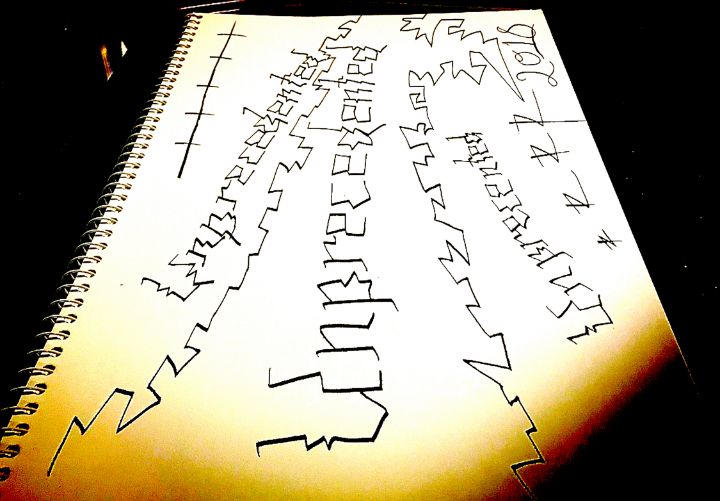 Unprecedented
Unprecedented
Unprecented